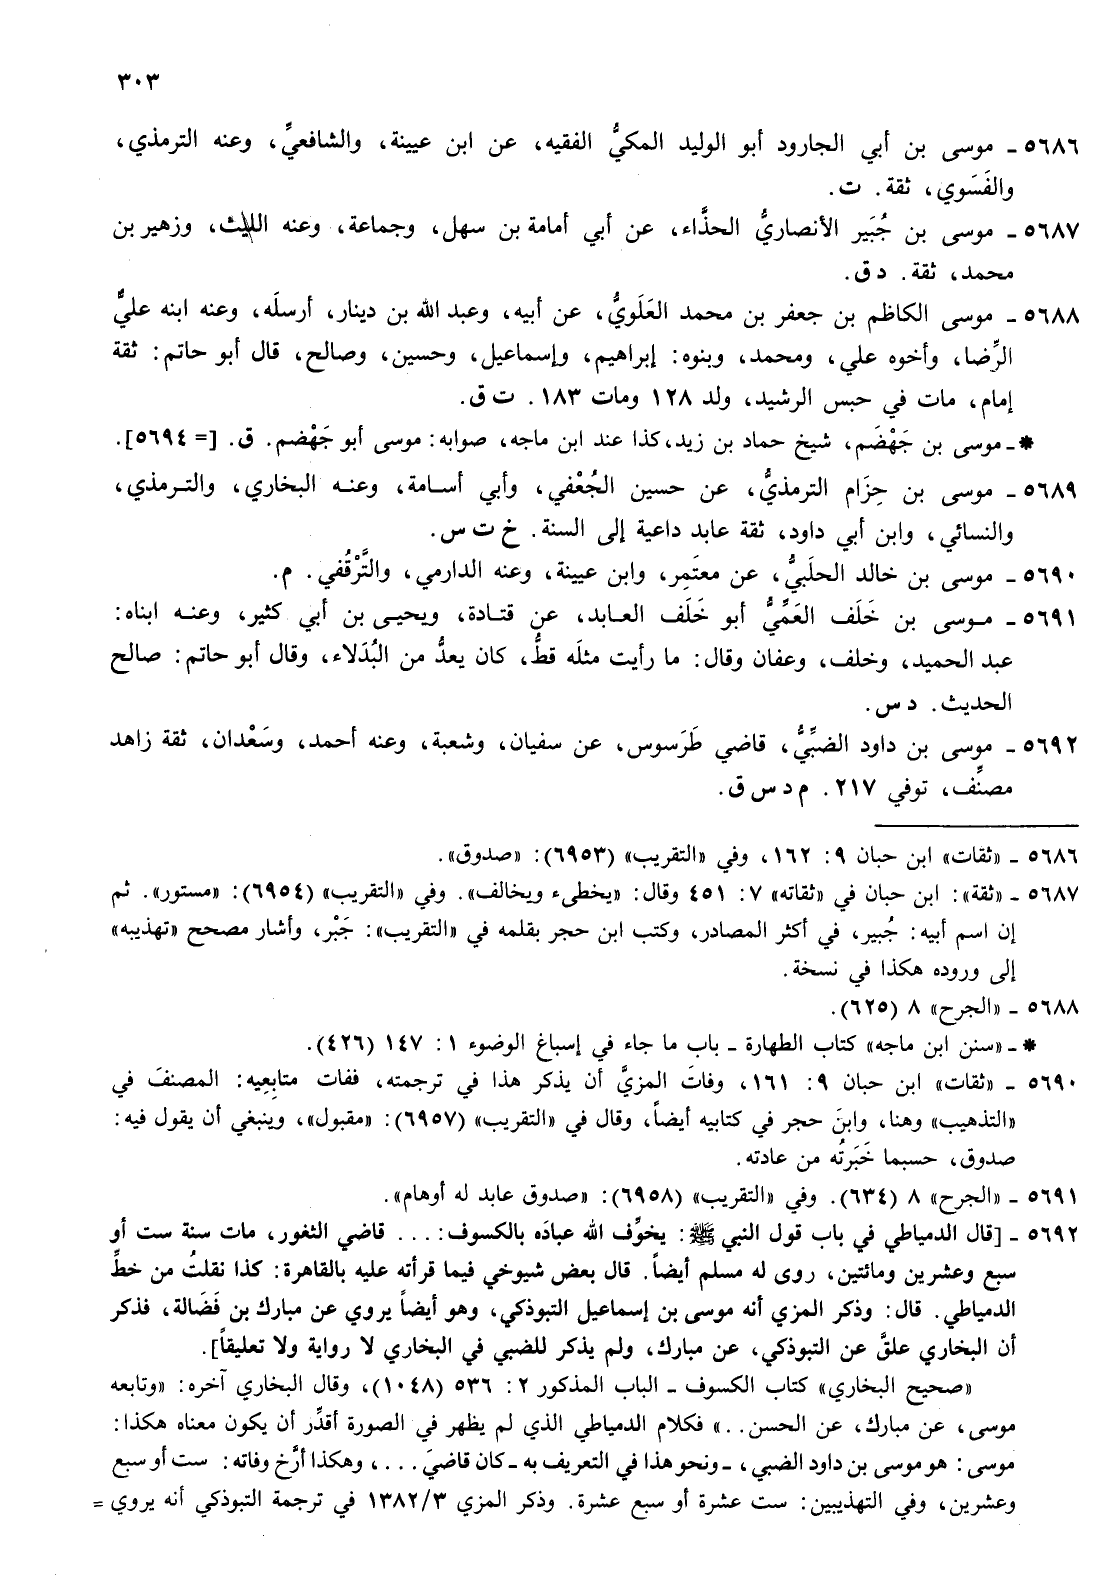 ٣٠٣
٥٦٨٦ - موسى بن أبي الجارود أبو الوليد المكيُّ الفقيه، عن ابن عيينة، والشافعيِّ، وعنه الترمذي،
والفَسَوي، ثقة. ت.
٥٦٨٧ - موسى بن جُبَير الأنصاريُّ الحذَّاء، عن أبي أمامة بن سهل، وجماعة، وعنه الليث، وزهير بن
محمد، ثقة. د ق.
٥٦٨٨ - موسى الكاظم بن جعفر بن محمد العَلَويُّ، عن أبيه، وعبد الله بن دينار، أرسلَه، وعنه ابنه عليٌّ
الرِّضا، وأخوه علي، ومحمد، وبنوه: إبراهيم، وإسماعيل، وحسين، وصالح، قال أبو حاتم: ثقة
إمام، مات في حبس الرشيد، ولد ١٢٨ ومات ١٨٣. ت ق.
* - موسى بن جَهْضَم، شيخ حماد بن زيد، كذا عند ابن ماجه، صوابه: موسى أبو جَهْضم. ق. [= ٥٦٩٤].
٥٦٨٩ - موسى بن حِزَام الترمذيُّ، عن حسين الجُعْفي، وأبي أسامة، وعنه البخاري، والترمذي،
والنسائي، وابن أبي داود، ثقة عابد داعية إلى السنة. خ ت س.
٥٦٩٠ - موسى بن خالد الحلَبيُّ، عن معتَمِر، وابن عيينة، وعنه الدارمي، والتَّرْقُفي. م.
٥٦٩١ - موسى بن خَلَف العَمِّيُّ أبو خَلَف العابد، عن قتادة، ويحيى بن أبي كثير، وعنه ابناه:
عبد الحميد، وخلف، وعفان وقال: ما رأيت مثلَه قطُّ، كان يعدُّ من البُدَلاء، وقال أبو حاتم: صالح
الحديث. د س.
٥٦٩٢ - موسى بن داود الضبِّيُّ، قاضي طَرَسوس، عن سفيان، وشعبة، وعنه أحمد، وسَعْدان، ثقة زاهد
مصنِّف، توفي ٢١٧. م د س ق.
٥٦٨٦ - «ثقات» ابن حبان ٩: ١٦٢، وفي «التقريب» (٦٩٥٣): «صدوق».
٥٦٨٧ - «ثقة»: ابن حبان في «ثقاته» ٧: ٤٥١ وقال: «يخطىء ويخالف». وفي «التقريب» (٦٩٥٤): «مستور». ثم
إن اسم أبيه: جُبير، في أكثر المصادر، وكتب ابن حجر بقلمه في «التقريب»: جَبْر، وأشار مصحح «تهذيبه»
إلى وروده هكذا في نسخة.
٥٦٨٨ - «الجرح» ٨ (٦٢٥).
* - «سنن ابن ماجه» كتاب الطهارة - باب ما جاء في إسباغ الوضوء ١: ١٤٧ (٤٢٦).
٥٦٩٠ - «ثقات» ابن حبان ٩: ١٦١، وفاتَ المزيَّ أن يذكر هذا في ترجمته، ففات متابِعِيه: المصنفَ في
«التذهيب» وهنا، وابنَ حجر في كتابيه أيضاً، وقال في «التقريب» (٦٩٥٧): «مقبول»، وينبغي أن يقول فيه:
صدوق، حسبما خَبَرتُه من عادته.
٥٦٩١ - «الجرح» ٨ (٦٣٤). وفي «التقريب» (٦٩٥٨): «صدوق عابد له أوهام».
٥٦٩٢ - [قال الدمياطي في باب قول النبي ﷺ: يخوِّف الله عبادَه بالكسوف: ... قاضي الثغور، مات سنة ست أو
سبع وعشرين ومائتين، روى له مسلم أيضاً. قال بعض شيوخي فيما قرأته عليه بالقاهرة: كذا نقلتُ من خطِّ
الدمياطي. قال: وذكر المزي أنه موسى بن إسماعيل التبوذكي، وهو أيضاً يروي عن مبارك بن فَضَالة، فذكر
أن البخاري علقَّ عن التبوذكي، عن مبارك، ولم يذكر للضبي في البخاري لا رواية ولا تعليقاً].
«صحيح البخاري» كتاب الكسوف - الباب المذكور ٢: ٥٣٦ (١٠٤٨)، وقال البخاري آخره: «وتابعه
موسى، عن مبارك، عن الحسن..» فكلام الدمياطي الذي لم يظهر في الصورة أقدِّر أن يكون معناه هكذا:
موسى: هو موسى بن داود الضبي، - ونحو هذا في التعريف به - كان قاضيَ ...، وهكذا أرَّخ وفاته: ست أو سبع
وعشرين، وفي التهذيبين: ست عشرة أو سبع عشرة. وذكر المزي ١٣٨٢/٣ في ترجمة التبوذكي أنه يروي =